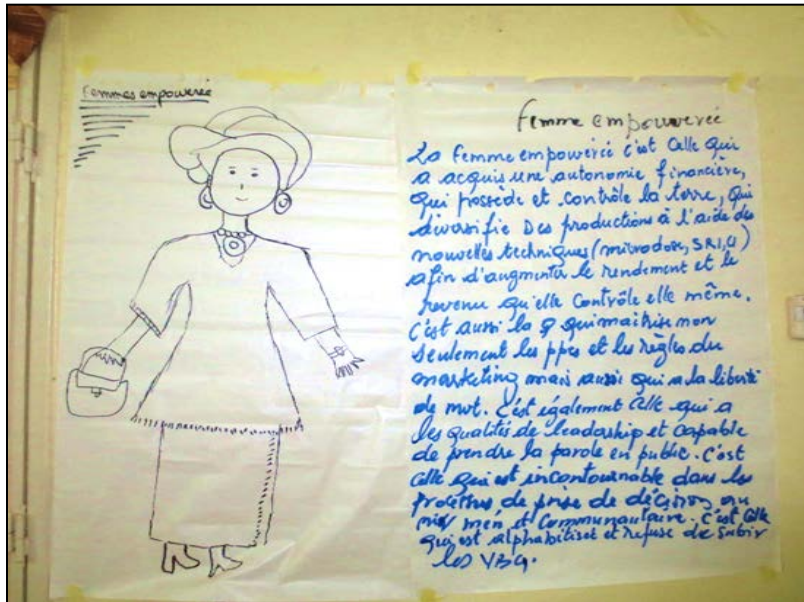 Femmes empowerée
Femme empouwerée
La Femme empowerée c'est celle qui
a acquis une autonomie financière,
qui possède et contrôle la terre, qui
diversifie Des productions à l'aide des
nouvelles techniques (microdose, SRI,
afin d'augmenter le rendement et le
revenu qu'elle contrôle elle même.
C'est aussi la ♀ qui maitrise non
seulement les ppes et les règles du
marketing mais aussi qui a la liberté
de mvt. C'est également celle qui a
les qualités de leadership et capable
de prendre la parole en public. C'est
celle qui est incontournable dans les
processus de prise de décision au
men et Communautaire. C'est celle
qui est alphabétisée et refuse de subir
les VBG.